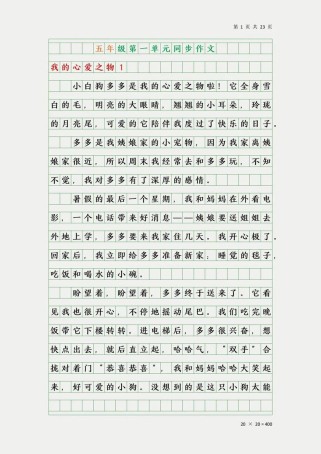 第 1 页 共 23 页
五年级第一单元同步作文
我的心爱之物1
小白狗多多是我的心爱之物啦！它全身雪
白的毛，明亮的大眼睛，翘翘的小耳朵，玲珑
的月亮尾，可爱的它陪伴我度过了快乐的日子。
多多是我姨娘家的小宠物，因为我家离姨
娘家很近，所以周末我经常去和多多玩，不知
不觉，我对多多有了深厚的感情。
暑假的最后一个星期，我和妈妈在外看电
影，一个电话带来好消息——姨娘要送姐姐去
外地上学，多多要来我家住几天。我开心极了。
回家后，我立即给多多准备新家：睡觉的毯子，
吃饭和喝水的小碗。
盼望着，盼望着，多多终于送来了。它看
见我也很开心，不停地摇动尾巴。我们吃完晚
饭带它下楼转转。进电梯后，多多很兴奋，想
快点出去，就后直立起，哈哈气，“双手”合
拢对着门“恭喜恭喜”，我和妈妈哈哈大笑起
来，好可爱的小狗。没想到的是这只小狗太能
20 × 20 = 400